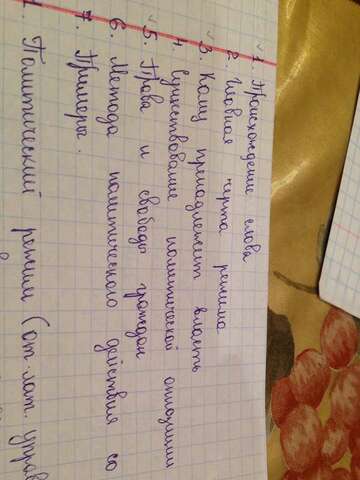 1. Происхождение слова
2. Главная черта режима
3. Кому принадлежит власть
4. Существование политической оппозиции
5. Права и свободы граждан
6. Метода политического действия со
7. Примеры.
1. Политический режим (от лат. управ